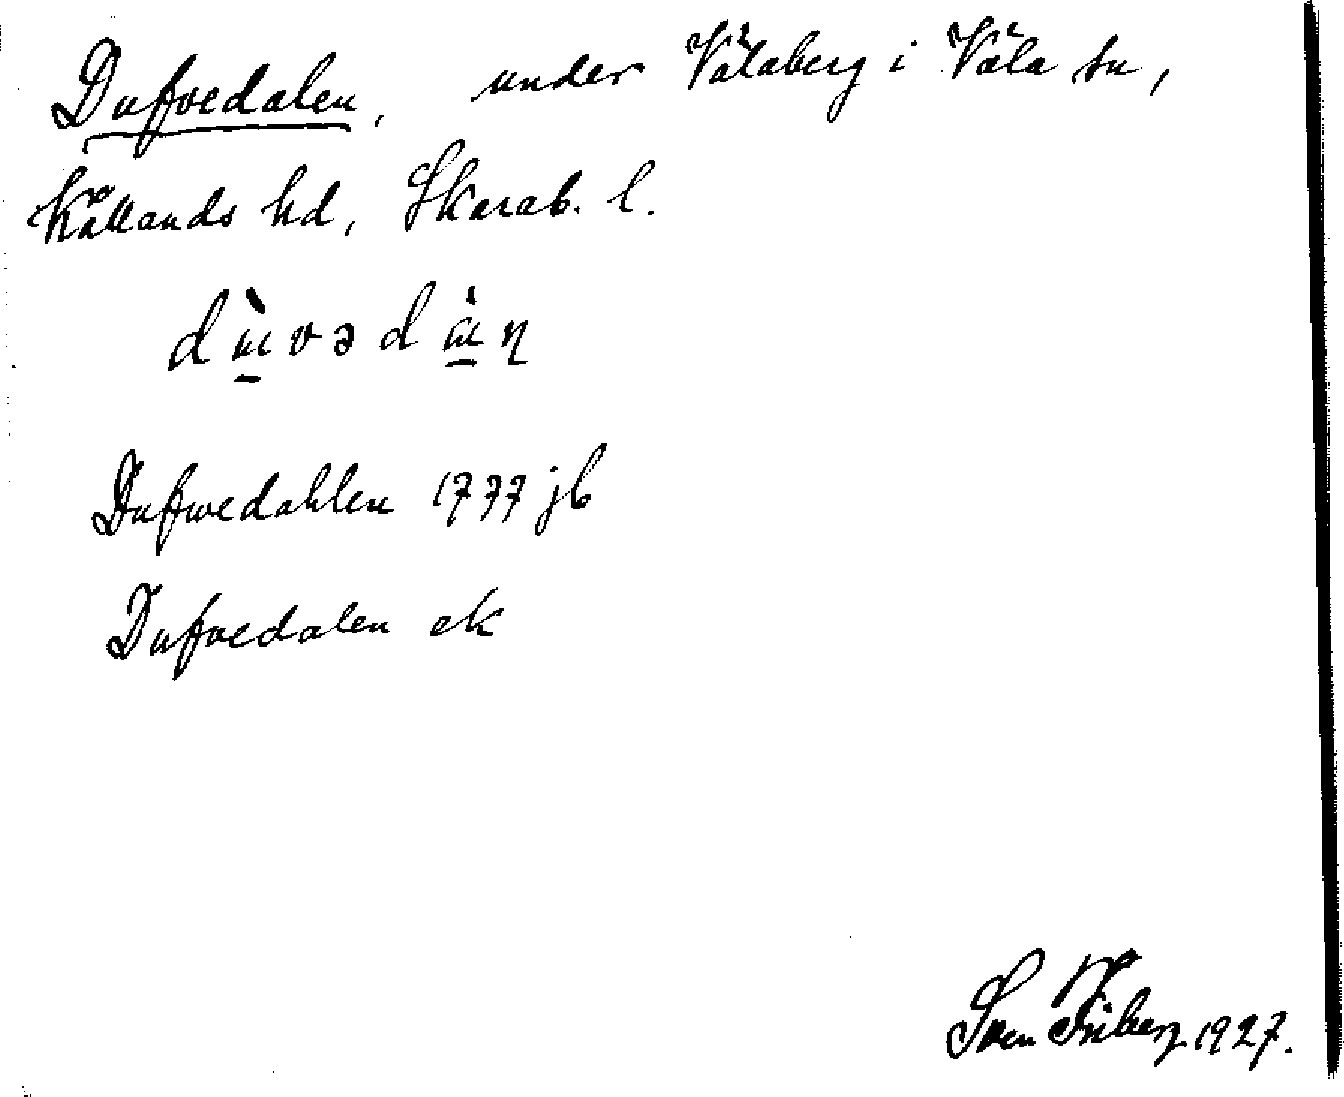 Dufvedalen, under Välaberg i Väla sn,
Kållands hd, Skarab. l.
Dufwedahlen 1777 jb
Dufvedalen ek
Sven Friberg 1927.